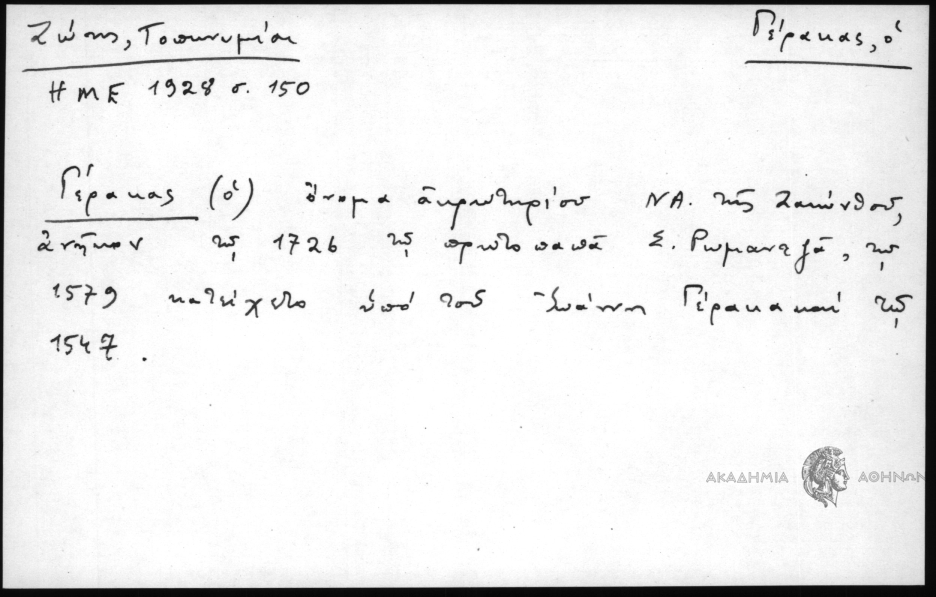 Ζώης, Τοπωνυμίαι
Γέρακας, ὁ
ΗΜΕ 1928 σ. 150
Γέρακας (ὁ) ὄνομα ἀκρωτηρίου ΝΑ. τῆς Ζακύνθου,
ἀνῆκον τῷ 1726 τῷ πρωτοπαπᾷ Σ. Ρωμανεζᾷ, τῷ
1579 κατείχετο ὑπό τοῦ Ἰωάννη Γέρακα καί τῷ
1547.
ΑΚΑΔΗΜΙΑ ΑΘΗΝΩΝ